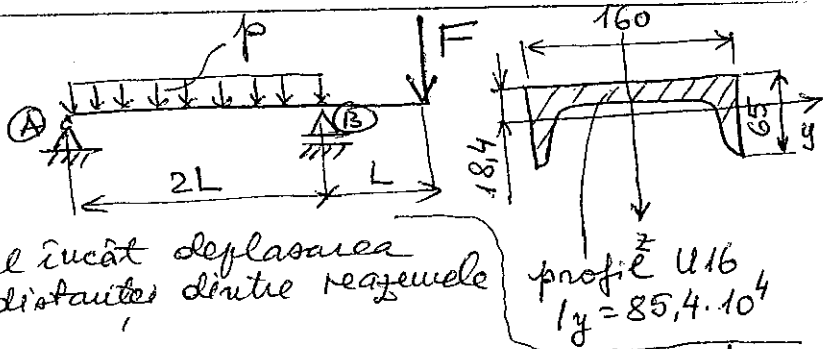 p
F
160
A
B
y
65
18,4
2L
L
z
l încât deplasarea
distanței dintre reazemele
profil U16
Iy = 85,4·10⁴